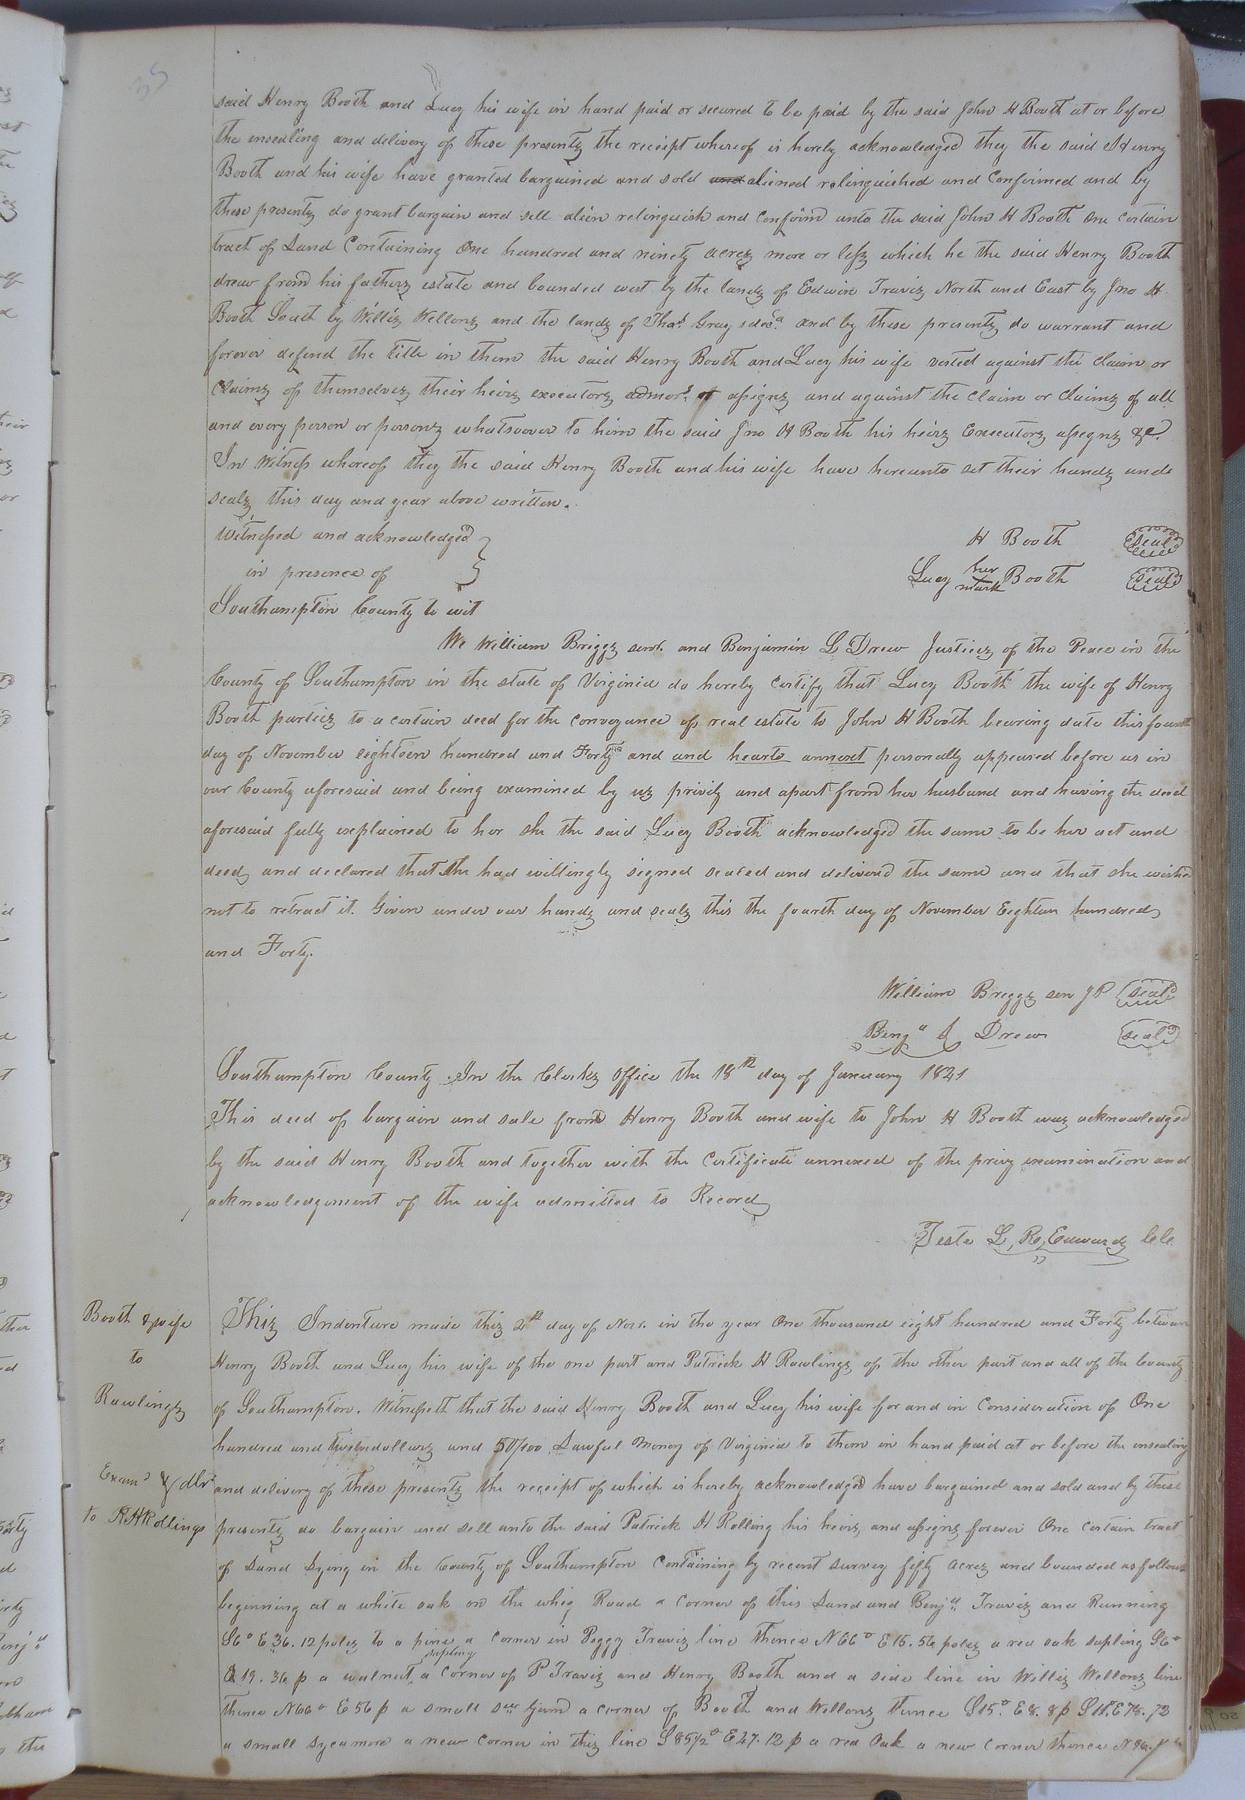 35
said Henry Booth and Lucy his wife in hand paid or secured to be paid by the said John H Booth at or before
the ensealing and delivery of these presents the receipt whereof is hereby acknowledged they the said Henry
Booth and his wife have granted bargained and sold and aliened relinquished and confirmed and by
these presents do grant bargain and sell alien relinquish and confirm unto the said John H Booth one certain
tract of Land Containing One hundred and ninety acres more or less which he the said Henry Booth
drew from his fathers estate and bounded west by the lands of Edwin Travis North and East by Jno H
Booth South by Willis Wellons and the lands of Thos. Gray and by these presents do warrant and
forever defend the title in them the said Henry Booth and Lucy his wife vested against the claim or
Claims of themselves their heirs executors admors. assigns and against the claim or claims of all
and every person or persons whatsoever to him the said Jno H Booth his heirs Executors assigns &c.
In Witness whereof they the said Henry Booth and his wife have hereunto set their hands and
seals this day and year above written.
Witnessed and acknowledged
in presence of
H Booth Seal
Lucy her mark Booth Seal
Southampton County to wit
We William Briggs senr. and Benjamin L Drew Justices of the Peace in the
County of Southampton in the state of Virginia do hereby certify that Lucy Booth the wife of Henry
Booth parties to a certain deed for the conveyance of real estate to John H Booth bearing date this fourth
day of November eighteen hundred and Forty and and hearto annext personally appeared before us in
our County aforesaid and being examined by us privily and apart from her husband and having the deed
aforesaid fully explained to her she the said Lucy Booth acknowledged the same to be her act and
deed, and declared that she had willingly signed sealed and delivered the same and that she wished
not to retract it. Given under our hands and seals this the fourth day of November Eighteen hundred
and Forty.
William Briggs sen JP seal
Benja L Drew seal
Southampton County. In the Clerks Office the 18th day of January 1841
This deed of bargain and sale from Henry Booth and wife to John H Booth was acknowledged
by the said Henry Booth and together with the Certificate annexed of the privy examination and
acknowledgement of the wife admitted to Record
Teste L, R, Edwards CC
Booth & wife
to
Rawlings
Examd & dlv
to
This Indenture made this 2th day of Nov. in the year One thousand eight hundred and Forty between
Henry Booth and Lucy his wife of the one part and Patrick H Rawlings of the other part and all of the County
of Southampton. Witnesseth that the said Henry Booth and Lucy his wife for and in Consideration of One
hundred and dollars and 50/100 Lawful Money of Virginia to them in hand paid at or before the ensealing
and delivery of these presents the receipt of which is hereby acknowledged have bargained and sold and by these
presents do bargain and sell unto the said Patrick H Rolling his heirs and assigns forever One certain tract
of Land Lying in the County of Southampton Containing by recent survey fifty acres and bounded as follows
beginning at a white oak on the whig Road a corner of this Land and Benja. Travis and Running
S6° E 36. 12 poles to a pine a corner in Peggy Travis line thence N66° E 15. 56 poles a red oak sapling S6°
19. 36 p a walnut sapling a corner of P Travis and Henry Booth and a side line in Willis Wellons line
thence N66° E 56 p a small Gum a corner of Booth and Wellons thence S15° E 8. 8 p E 78. 72
a small sycamore a new corner in this line S85½° E 27. 12 p a red Oak a new corner thence